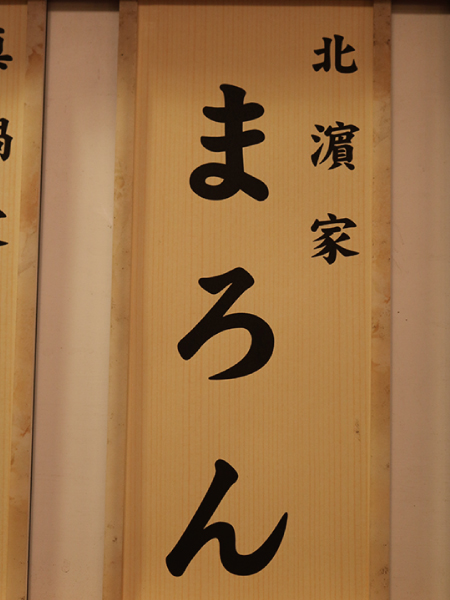 北濵家
まろん